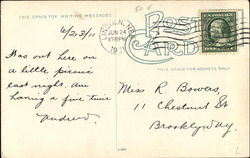 THIS SPACE FOR WRITING MESSAGES
POST CARD
LINCOLN, NEB.
JUN 24
THIS SPACE FOR ADDRESS ONLY
6/23/11
Was out here on
a little picnic
last night. am
having a fine time
Andrew.
Miss R Bowers,
11 Chestnut St
Brooklyn Ny.